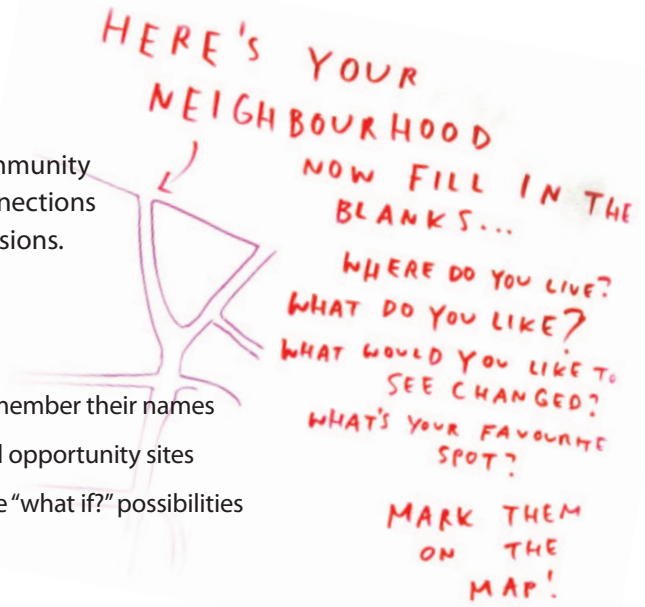 HERE'S YOUR
NEIGHBOURHOOD
NOW FILL IN THE
BLANKS...
WHERE DO YOU LIVE?
WHAT DO YOU LIKE?
WHAT WOULD YOU LIKE TO
SEE CHANGED?
WHAT'S YOUR FAVOURITE
SPOT?
MARK THEM
ON THE
MAP!
member their names
opportunity sites
"what if?" possibilities